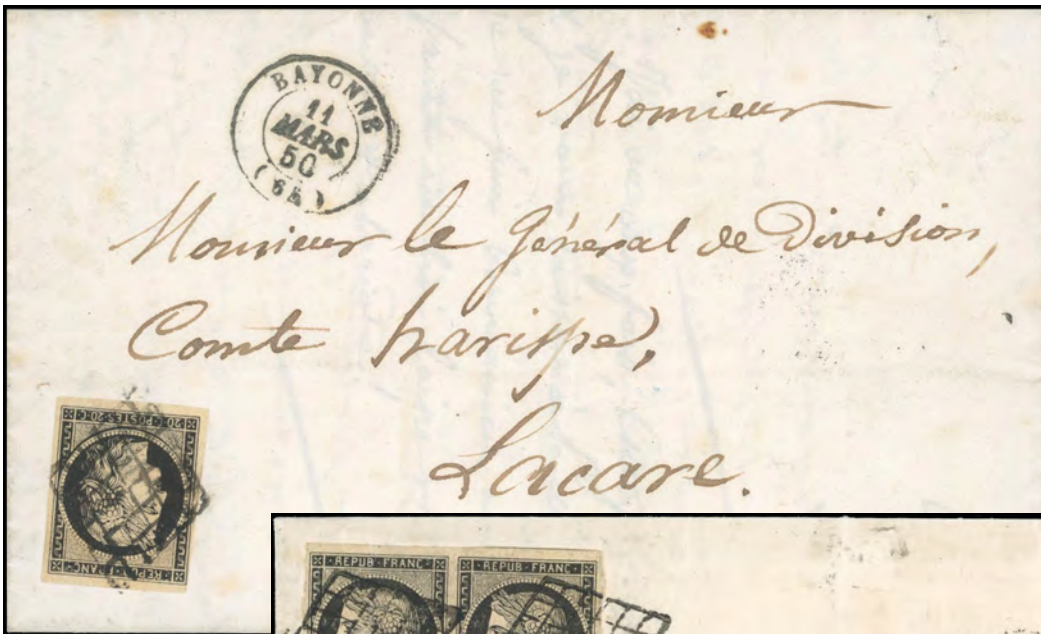 BAYONNE
11
MARS
50
(64)
Monsieur
Monsieur le Général de Division,
Comte harispe,
Lacare.
20·C·POSTES·20·C
REPUB·FRANC
REPUB·FRANC·
REPUB·FRANC·